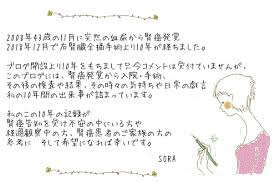 2008年43歳の11月に突然の血尿から腎癌発覚
2018年12月で右腎臓全摘手術より10年が経ちました。
ブログ開設より10年をもちまして只今コメントは受付ていませんが、
このブログには、腎癌発覚から入院・手術、
その後の検査や結果、その時々の気持ちや日常の戯言
私の10年間の出来事が詰まっています。
私のこの10年の記録が
腎癌告知を受け不安の中にいる方や
経過観察中の方、腎癌患者のご家族の方の
参考に そして希望になれば幸いです。
SORA